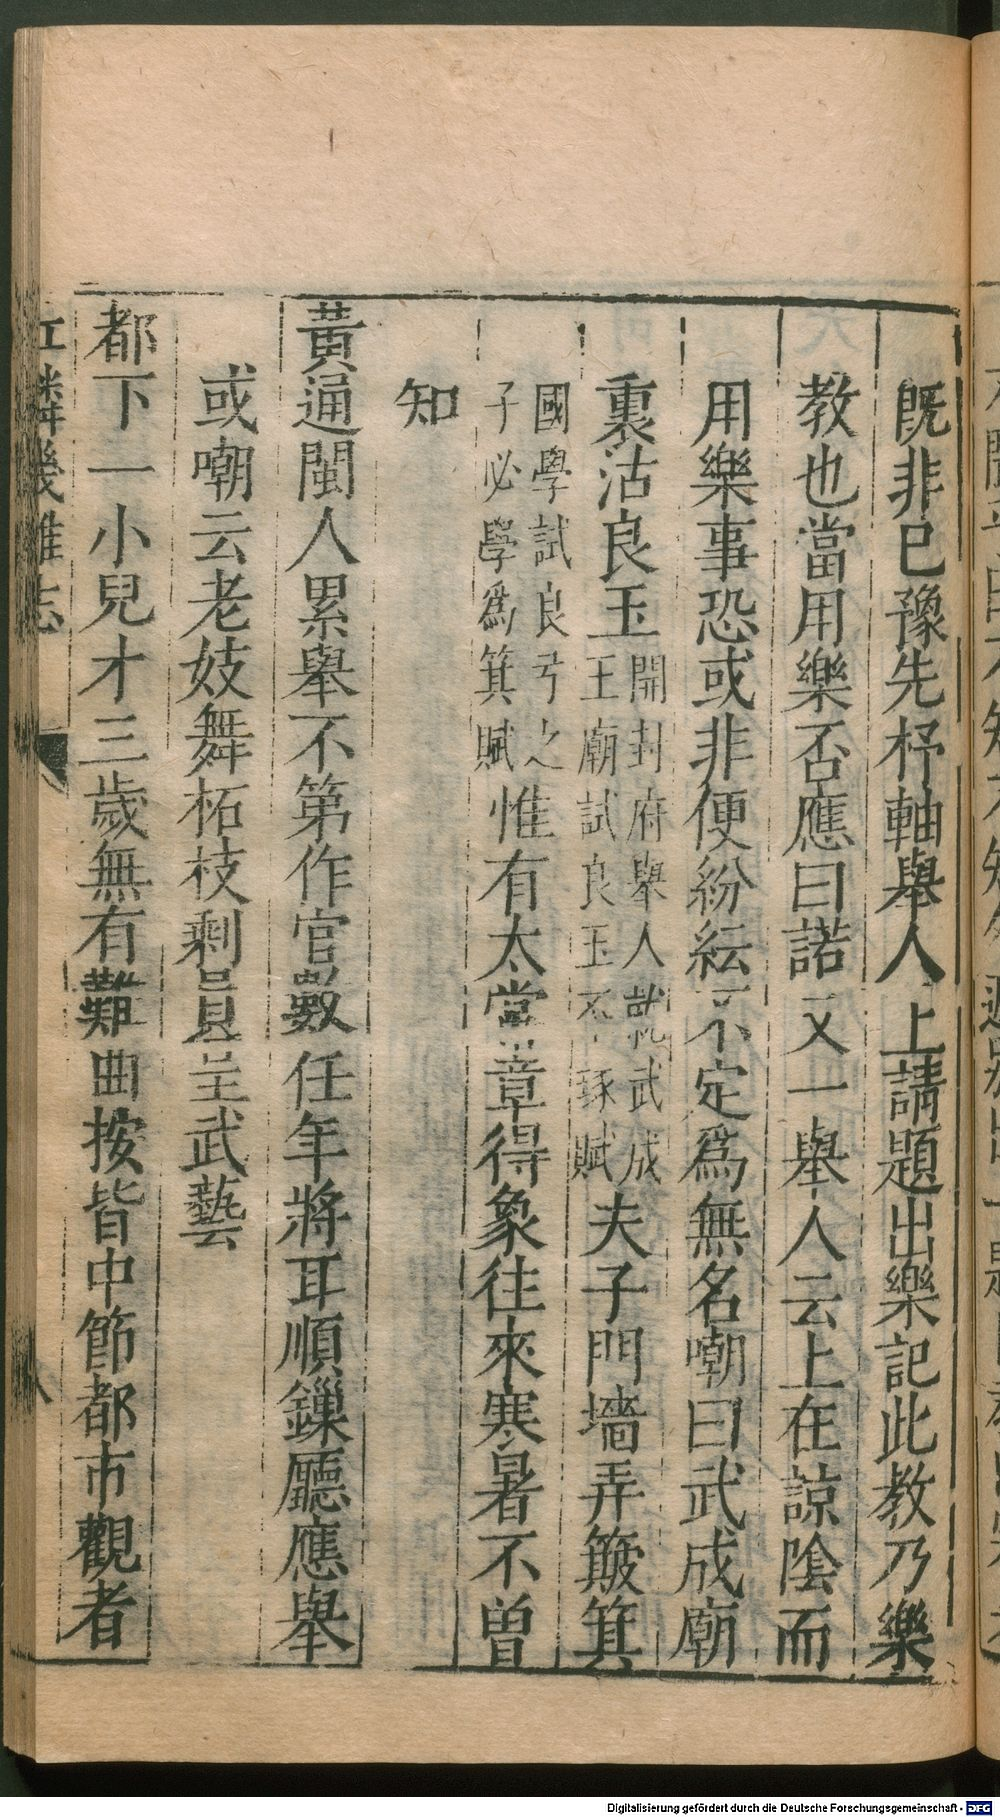 既非已豫先杼軸舉人上請題出樂記此教乃樂
教也當用樂否應曰諾又一舉人云上在諒陰而
用樂事恐或非便紛紜不定爲無名嘲曰武成廟
裏沽良玉開封府舉人就武成王廟試良玉不琢賦夫子門墻弄簸箕
國學試良弓之子必學爲箕賦惟有太常章得象往來寒暑不曾
知
黃通閩人累舉不第作官數任年將耳順鏁廳應舉
或嘲云老妓舞柘枝剩員呈武藝
都下一小兒才三歲無有難曲按皆中節都市觀者
江隣幾雜志
八
Digitalisierung gefördert durch die Deutsche Forschungsgemeinschaft - DFG